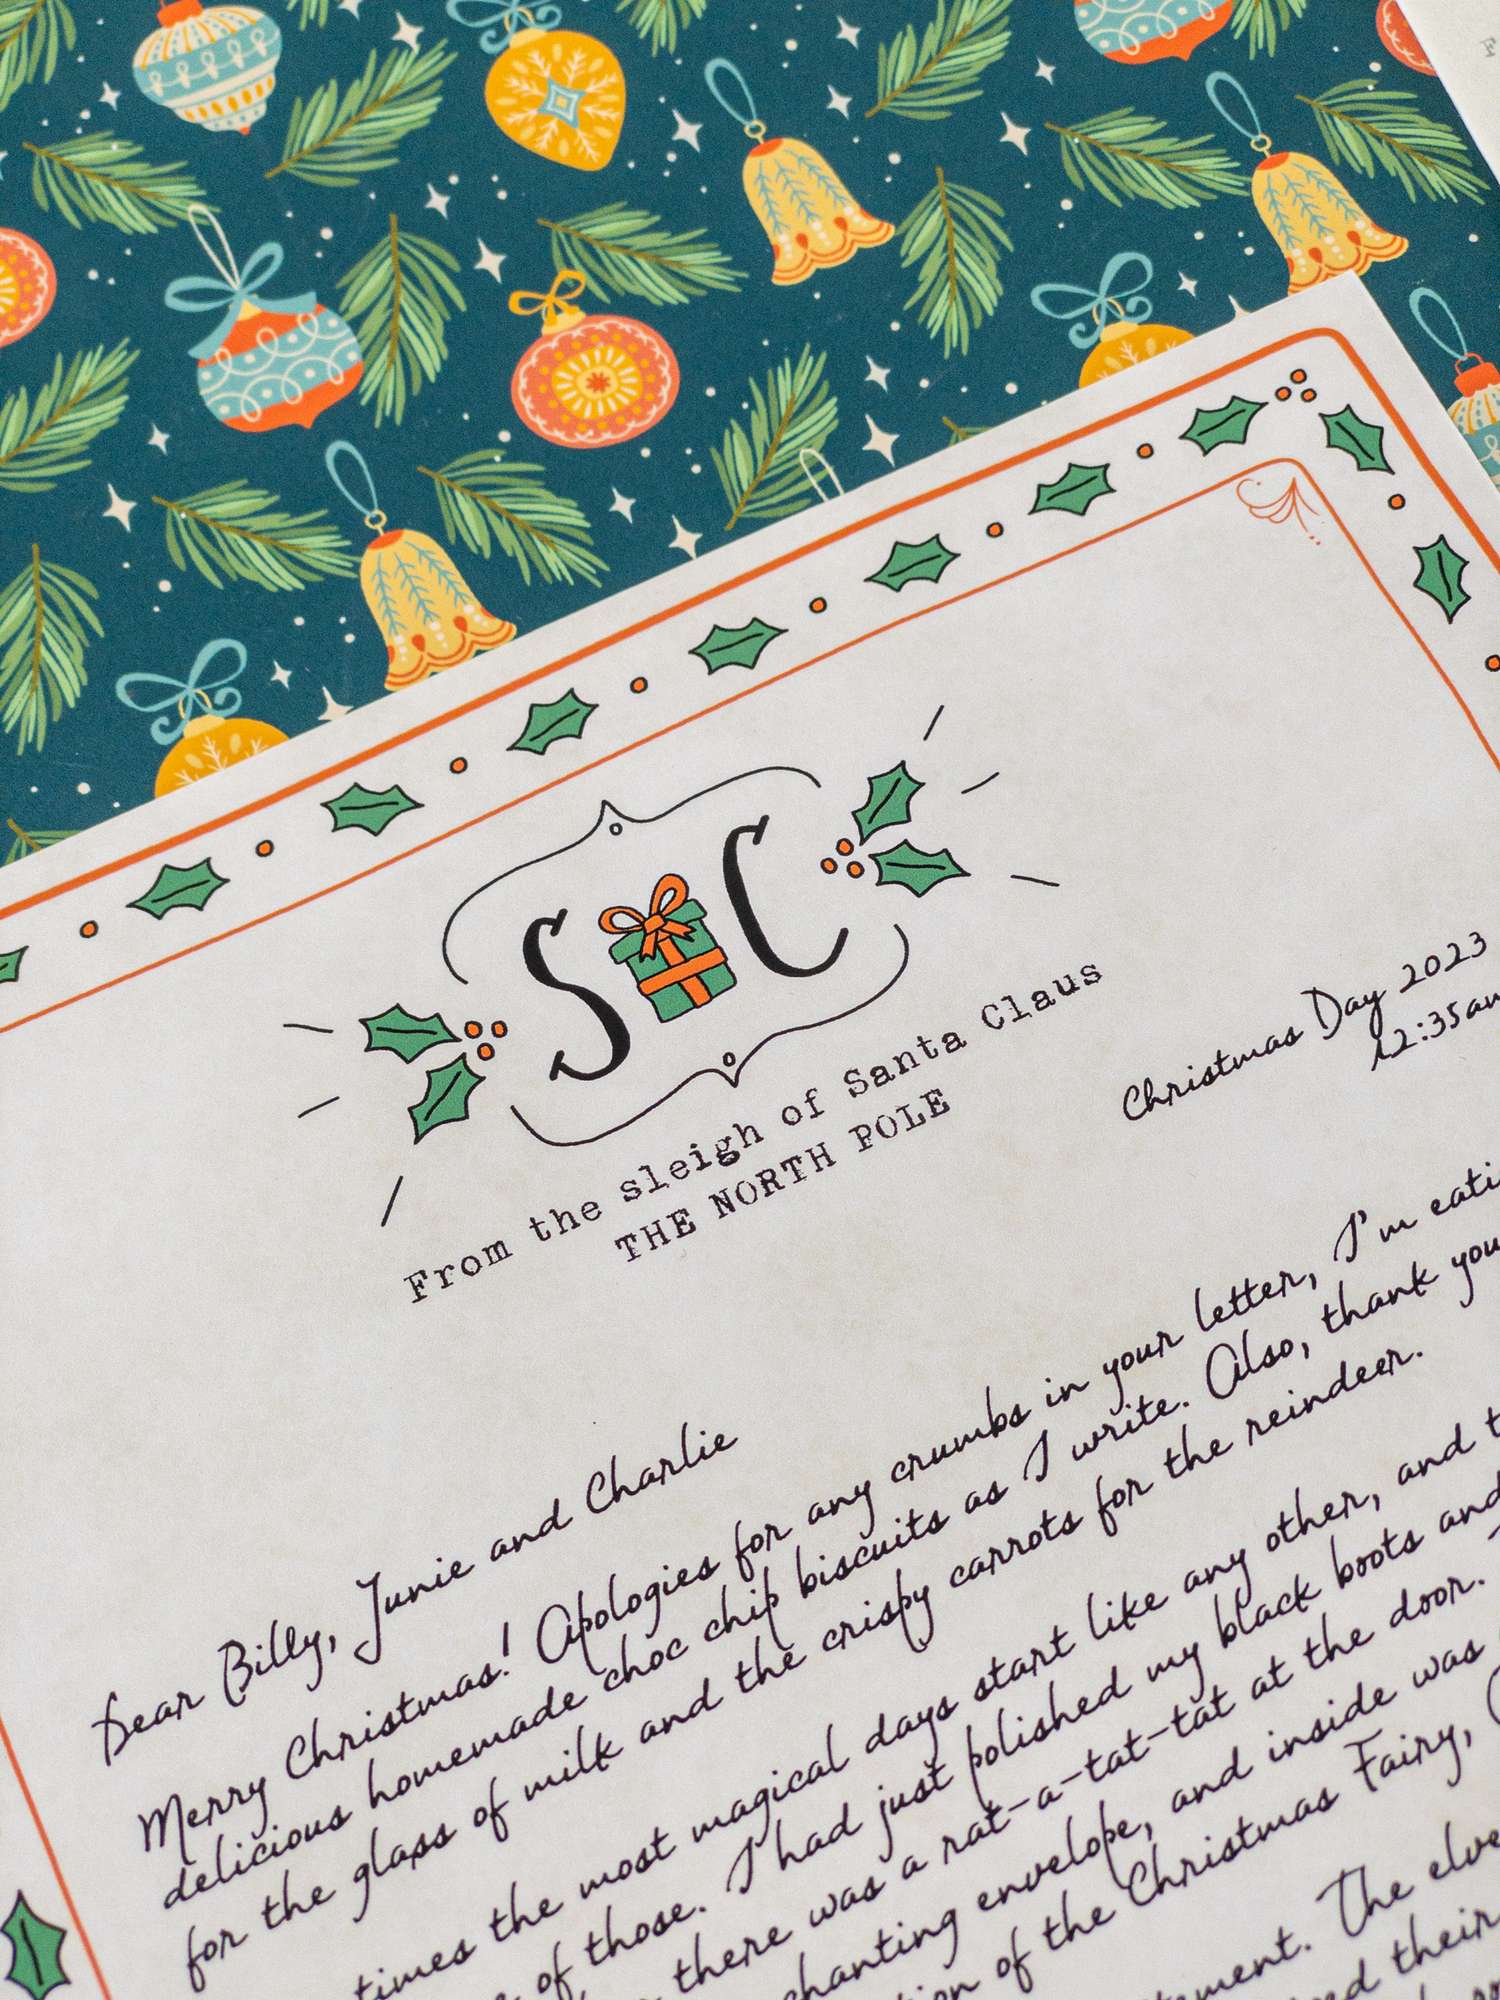 S C
From the sleigh of Santa Claus
THE NORTH POLE
Christmas Day 2023
12:35am
Dear Billy, Junie and Charlie
Merry Christmas! Apologies for any crumbs in your letter, I'm
delicious homemade choc chip biscuits as I write. Also, thank you
for the glass of milk and the crispy carrots for the reindeer.
the most magical days start like any other, and
of those. I had just polished my black boots and
there was a rat-a-tat-tat at the door.
envelope, and inside was
of the Christmas Fairy,
The
their